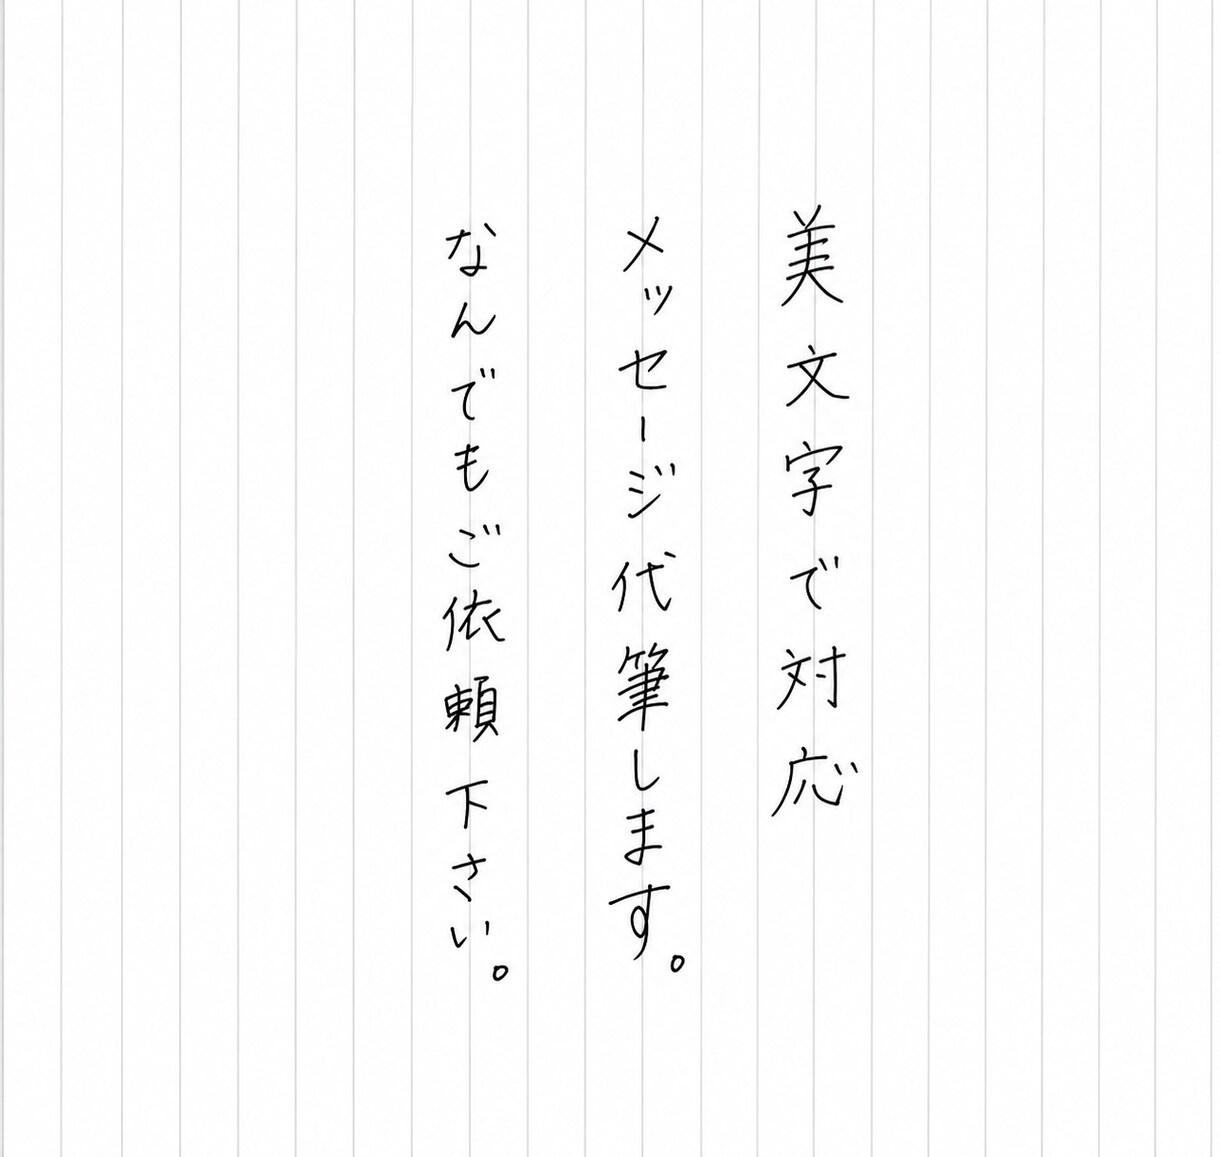 美文字で対応
メッセージ代筆します。
なんでもご依頼下さい。